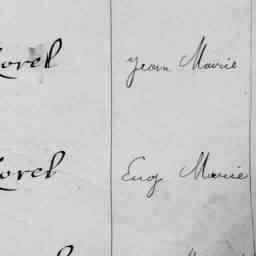 orel Jean Marie
orel Eug Marie